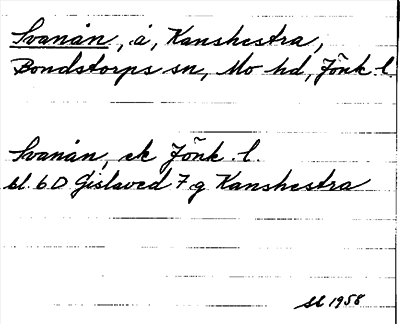 Svanån, å, Kanshestra,
Bondstorps sn, Mo hd, Jönk. l.
Svanån, ek Jönk. l.
bl. 6 D Gislaved 7 g Kanshestra
SL 1958